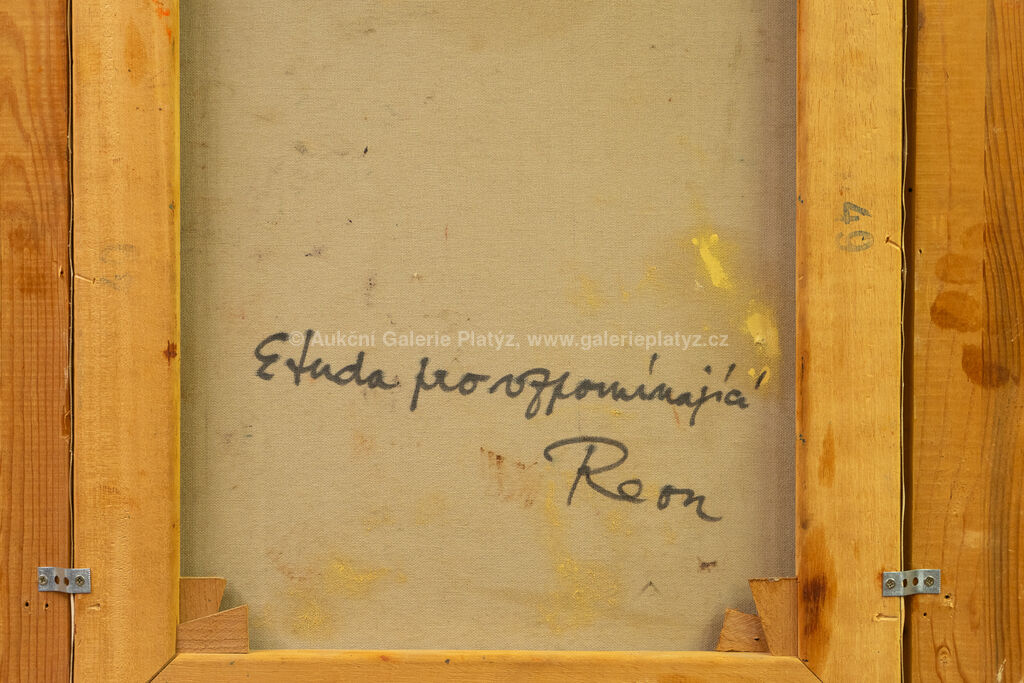 49
© Aukční Galerie Platýz, www.galerieplatyz.cz
Etuda pro vzpomínající
Reon